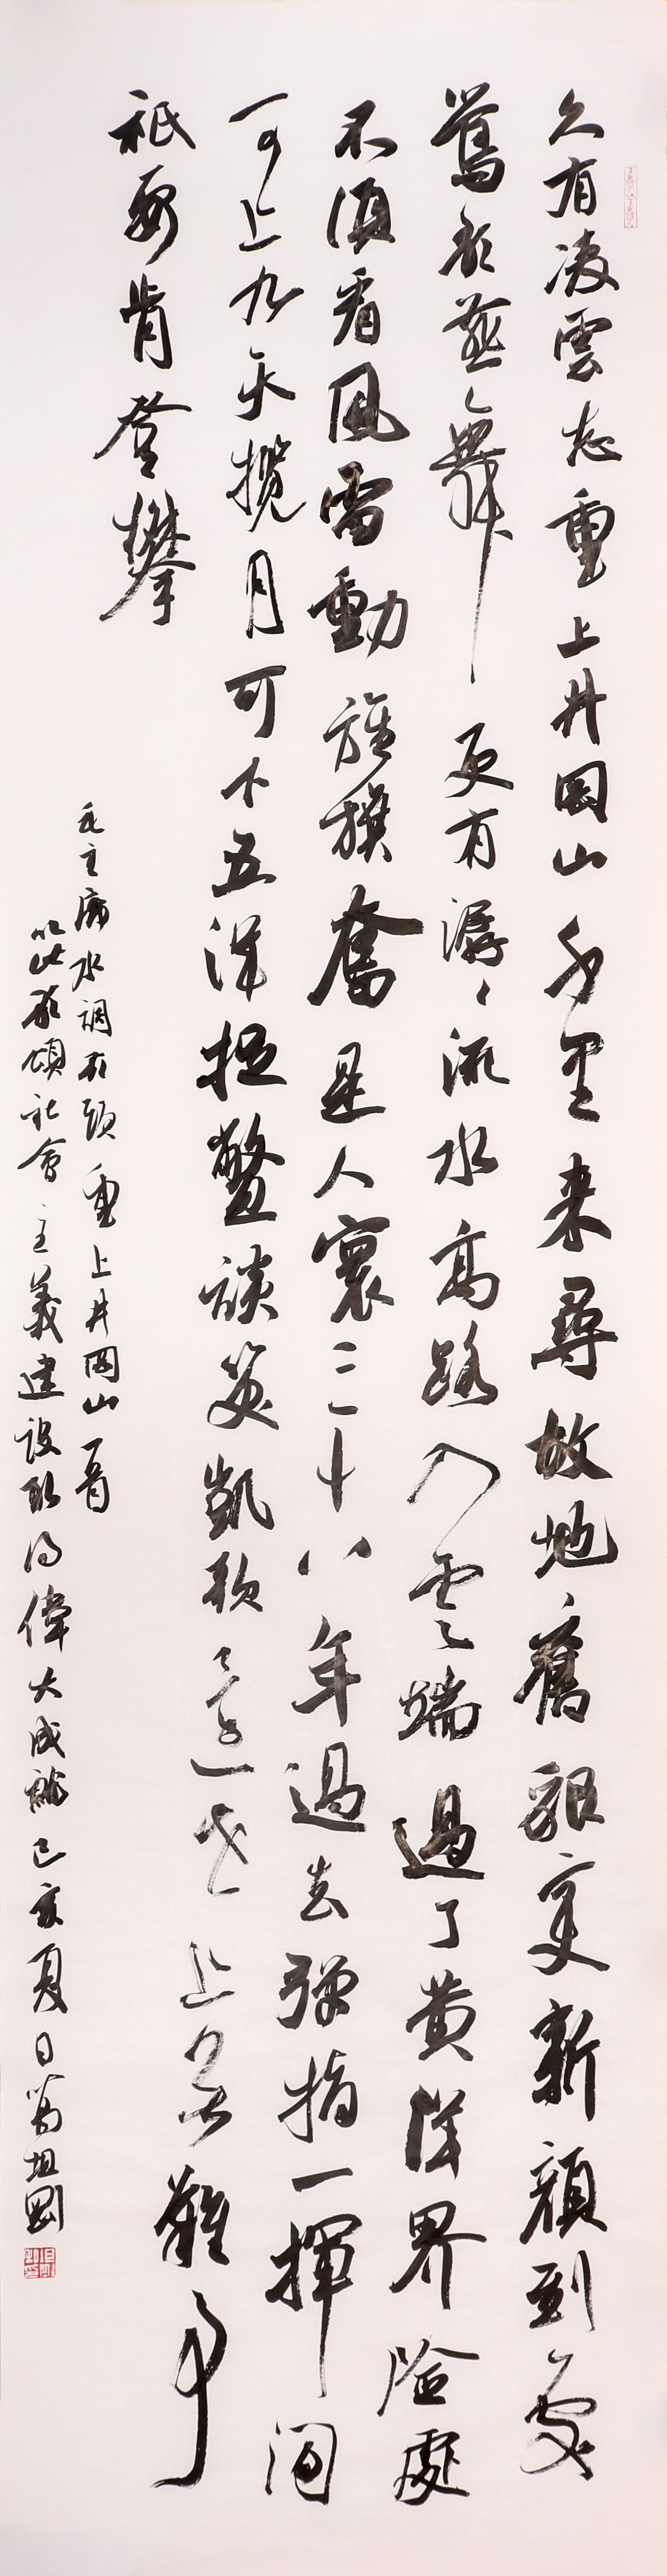 久有凌雲志重上井岡山千里来尋故地舊貌變新顏到處
鶯歌燕舞更有潺々流水高路入雲端過了黄洋界險處
不須看風雷動旌旗奮是人寰三十八年過去彈指一揮間
可上九天攬月可下五洋捉鱉談笑凱歌還世上無難事
祇要肯登攀
毛主席水調歌頭重上井岡山一首
以此歌頌社會主義建設取得偉大成就己亥夏日